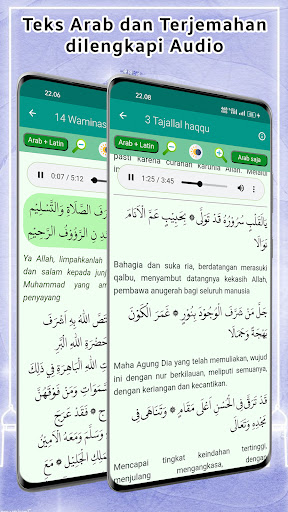 Teks Arab dan Terjemahan
dilengkapi Audio
22.06
14 Waminas
Arab + Latin
0:07 / 5:12
رَفَ الصَّلَاةِ وَالتَّسْلِيْمِ
دِنِ الرَّؤُوْفِ الرَّحِيْمِ
Ya Allah, limpahkanlah
dan salam kepada jun
Muhammad yang am
penyayang
تَصَّ اللهُ بِهِ أَشْرَفَ
حَضْرَةِ اللهِ الْبَرِيَّ
الْعِبَادِ إِلَيْهِ فِي ذٰلِكَ
سَّمٰوَاتِ وَمَنْ فَوْقَهُنَّ
22.08
3 Tajallal haqqu
Arab + Latin
Arab saja
pasti karena curahan karunia Allah. Melalui
1:25 / 3:45
يَالَقَلْبٍ سُرُوْرُهُ قَدْ تَوَالٰى ۞ بِحَبِيْبٍ عَمَّ الْأَنَامَ
نَوَالَا
Bahagia dan suka ria, berdatangan merasuki
qalbu, menyambut datangnya kekasih Allah,
pembawa anugerah bagi seluruh manusia
جَلَّ مَنْ شَرَّفَ الْوُجُوْدَ بِنُوْرٍ ۞ غَمَرَ الْكَوْنَ
بَهْجَةً وَجَمَالَا
Maha Agung Dia yang telah memuliakan, wujud
ini dengan nur berkilauan, meliputi semuanya,
dengan keriangan dan kecantikan.
قَدْ تَرَقّٰى فِي الْحُسْنِ أَعْلٰى مَقَامٍ ۞ وَتَنَاهٰى فِي
مَجْدِهِ وَتَعَالٰى
Mencapai tingkat keindahan tertinggi,
menjulang mengangkasa, dengan